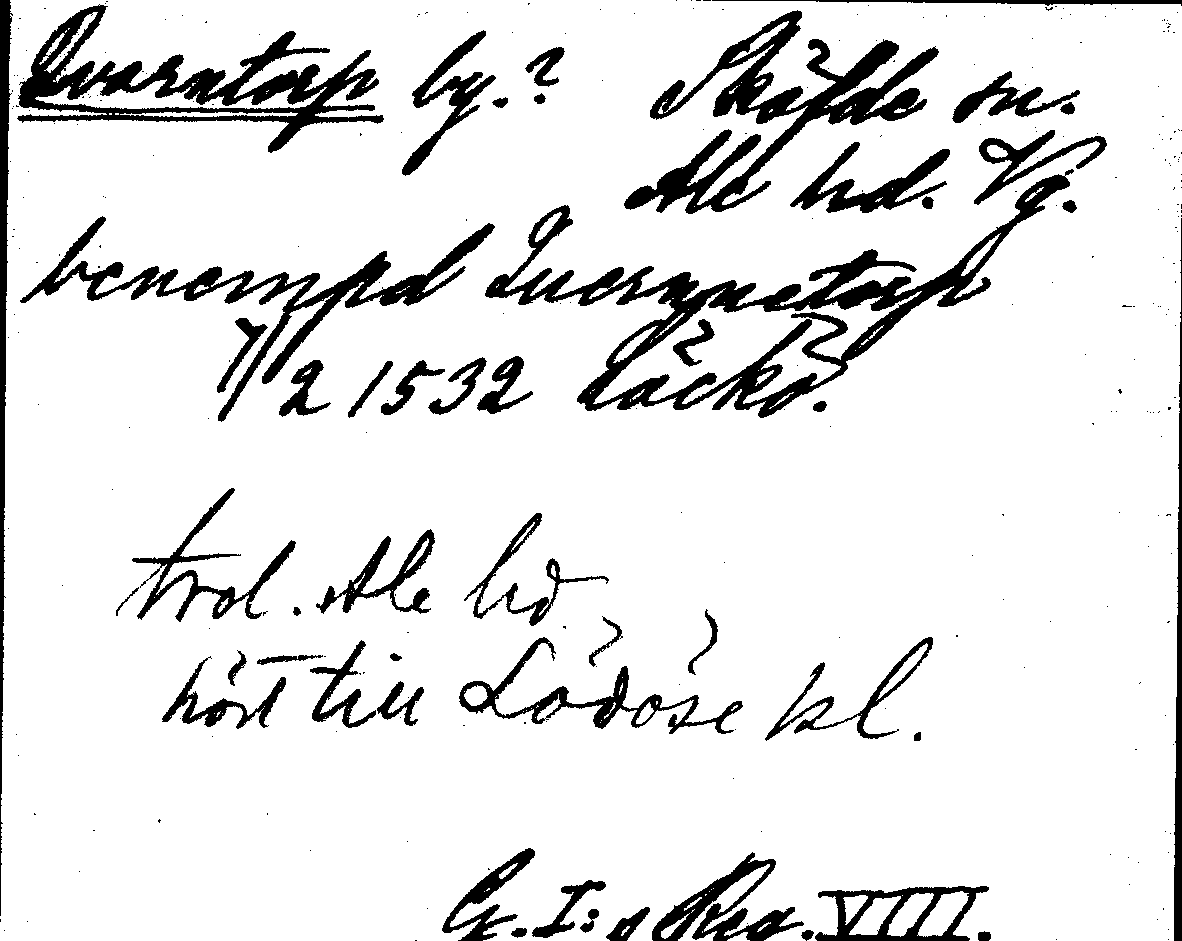 Qvarntorp by.? Sköfde sn.
Ale hd. Vg.
benempd Quernnetorp
7/2 1532 Läckö.
trol. Ale hd
hört till Lödöse kl.
G. I:s Reg. VIII.